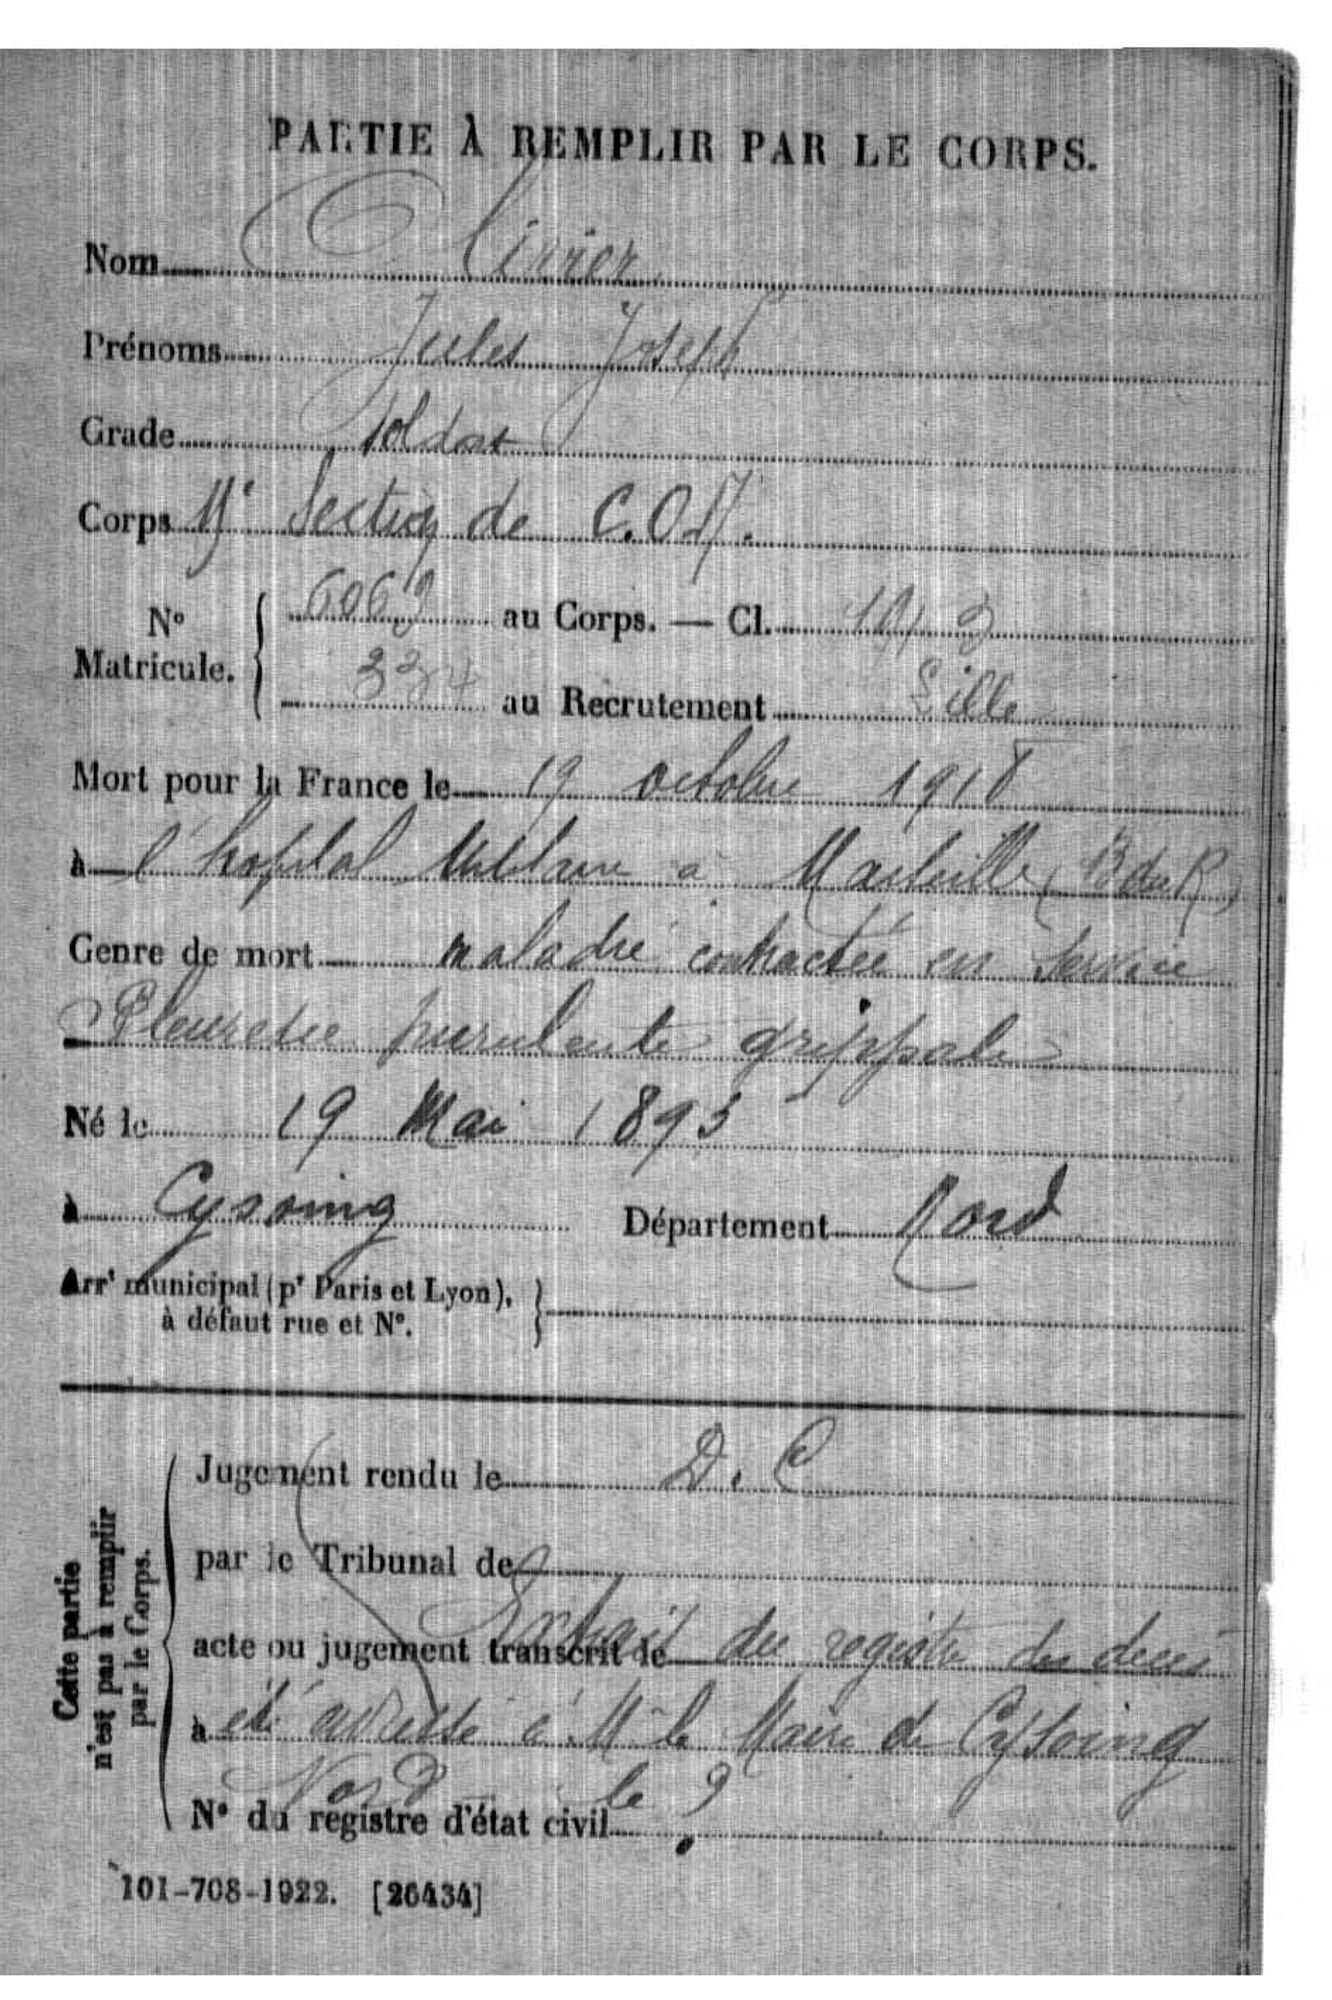 PARTIE À REMPLIR PAR LE CORPS.
Nom Olivier
Prénoms Jules Joseph
Grade Soldat
Corps Section de C.O.A.
N° Matricule. 6069 au Corps. — Cl. 1913
334 au Recrutement Lille
Mort pour la France le 19 octobre 1918
à l'hopital Militaire à Marseille (B du R)
Genre de mort maladie contractée en service
Pleuresie purulente grippale
Né le 19 Mai 1893
à Cysoing Département Nord
Arrt municipal (pr Paris et Lyon),
à défaut rue et N°.
Cette partie
n'est pas à remplir
par le Corps.
Jugement rendu le D. C
par le Tribunal de
acte ou jugement transcrit le Extrait du registre des deces
à été adressé à Mr le Maire de Cysoing
Nord le ?
N° du registre d'état civil
101-708-1922. [26434]